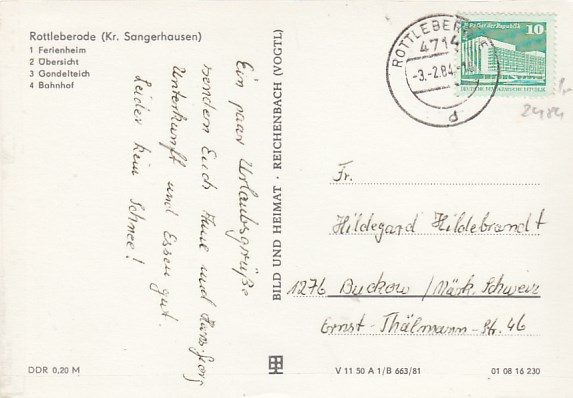 Rottleberode (Kr. Sangerhausen)
1 Ferienheim
2 Übersicht
3 Gondelteich
4 Bahnhof
Ein paar Urlaubsgrüße
senden Euch Anne und Hansjörg
Unterkunft und Essen gut.
Leider kein Schnee!
DDR 0,20 M
BILD UND HEIMAT · REICHENBACH (VOGTL)
4714
-3.-2.84.-
d
10
2484
Fr.
Hildegard Hildebrandt
1276 Buckow / Märk. Schweiz
Ernst-Thälmann-Str. 46
V 11 50 A 1/B 663/81
01 08 16 230